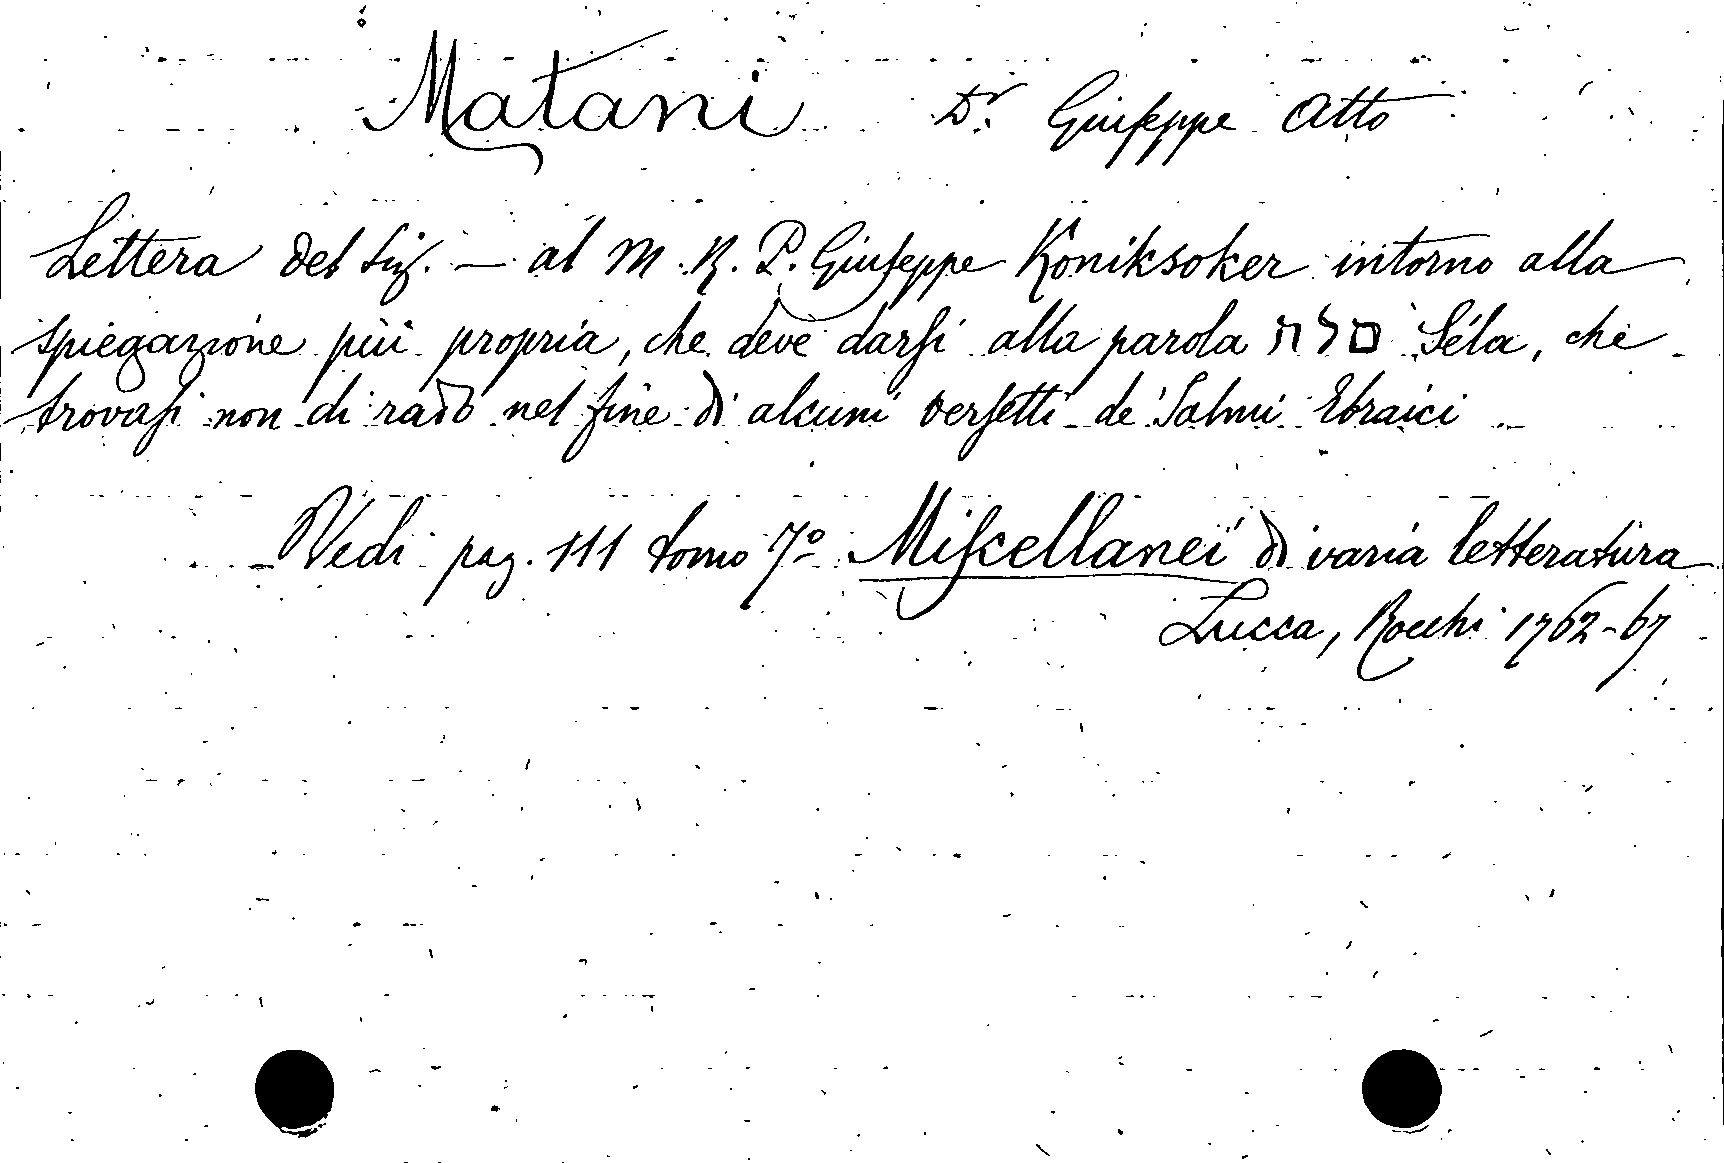 Matani Dr. Giuseppe Atto
Lettera del Sig. — al M. R. P. Giuseppe Koniksoker intorno alla
spiegazione più propria, che deve darsi alla parola סלה Séla, che
trovasi non di rado nel fine di alcuni versetti de' Salmi Ebraici
Vedi pag. 111 tomo 7º Miscellanei di varia letteratura
Lucca, Rocchi 1762-67